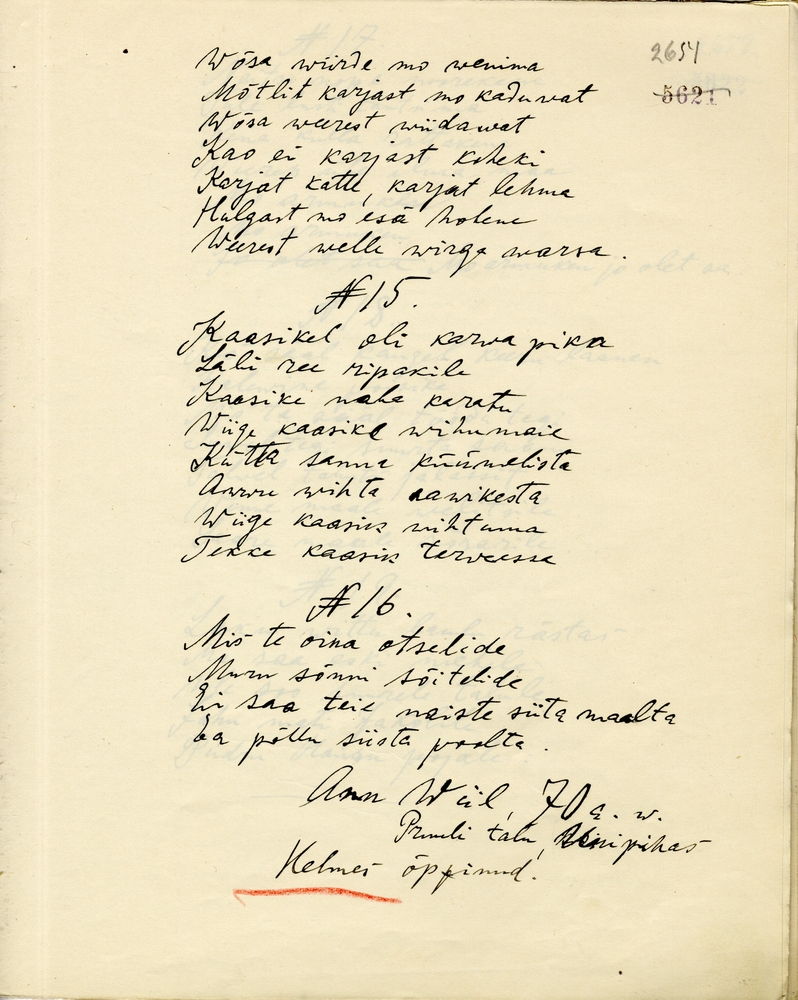 2654
5621
Wõsa wiirde mo wenima
Mõtlit karjast mo kaduwat
Wõsa weerest wiidawat
Kao ei karjast koheki
Karjat katte, karjat lehma
Hulgast mo esä holene
Weerest welle wirga warsa.
№ 15.
Kaasikel oli karwa pika
Läbi ree ripakile
Kaasike naha karatu
Wiige kaasike wihumaie
Kütta sanna küünelista
Awwu wihta aawikesta
Wiige kaasik wihtuma
Tekke kaasik terwessa
№ 16.
Mis te oina otselide
Muru sõnni sõitelide
Ei saa teie naiste siita maalta
Ea põllu siista poolta.
Ann Wiil, 70 a. w.
Pruuli talu,
Helmes õppinud.